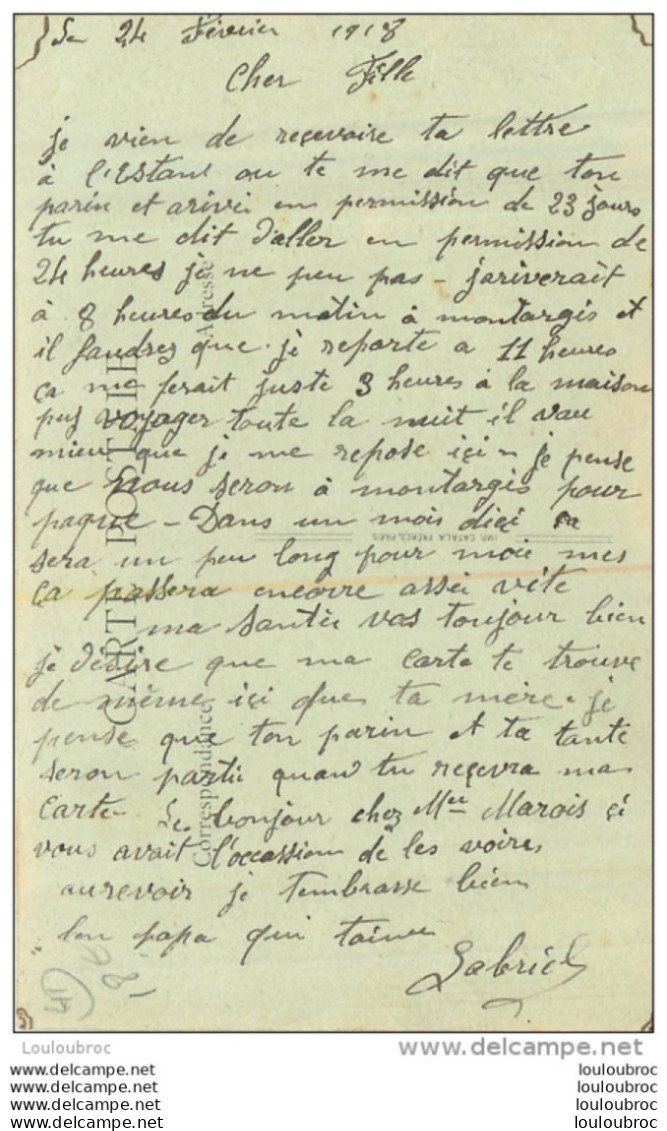 Le 24 Février 1918
Cher Fille
je vien de reçevoire ta lettre
à l'Estant ou te me dit que ton
parin et arivé en permission de 23 jours
tu me dit d'aller en permission de
24 heures je ne peu pas - jariverait
à 8 heures du matin à montargis et
il faudrez que je reporte a 11 heures
ça me ferait juste 3 heures à la maison
puy voyager toute la nuit il vau
mieu que je me repose içi - je pense
que nous seron à montargis pour
paque - Dans un mois dici sa
sera un peu long pour moie mes
ça passera encorre asséi vite
ma santée vas toujour bien
je désire que ma carte te trouve
de même içi que ta mère. je
pense que ton parin et ta tante
seron partie quand tu reçevra ma
carte. Le bonjour chez Mee Marois çi
vous avait l'occassion de les voires
aurevoir je tembrasse bien
ton papa qui taime
Gabriel
CARTE POSTALE
Correspondance
Adresse
IMP. CATALA FRÈRES, PARIS
Louloubroc
delcampe.net
louloubroc
louloubroc
louloubroc
louloubroc
louloubroc
louloubroc
louloubroc
louloubroc